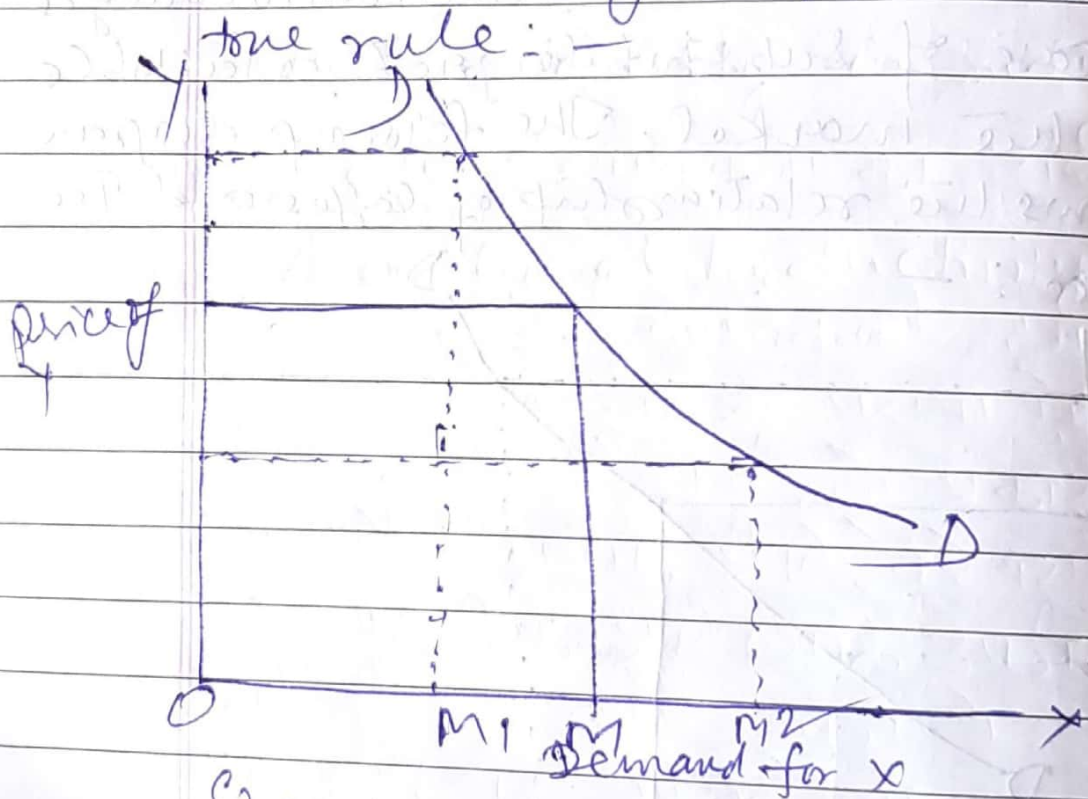 true rule : —
Y
D
price of
Y
D
O
M1 M M2
X
Demand for X